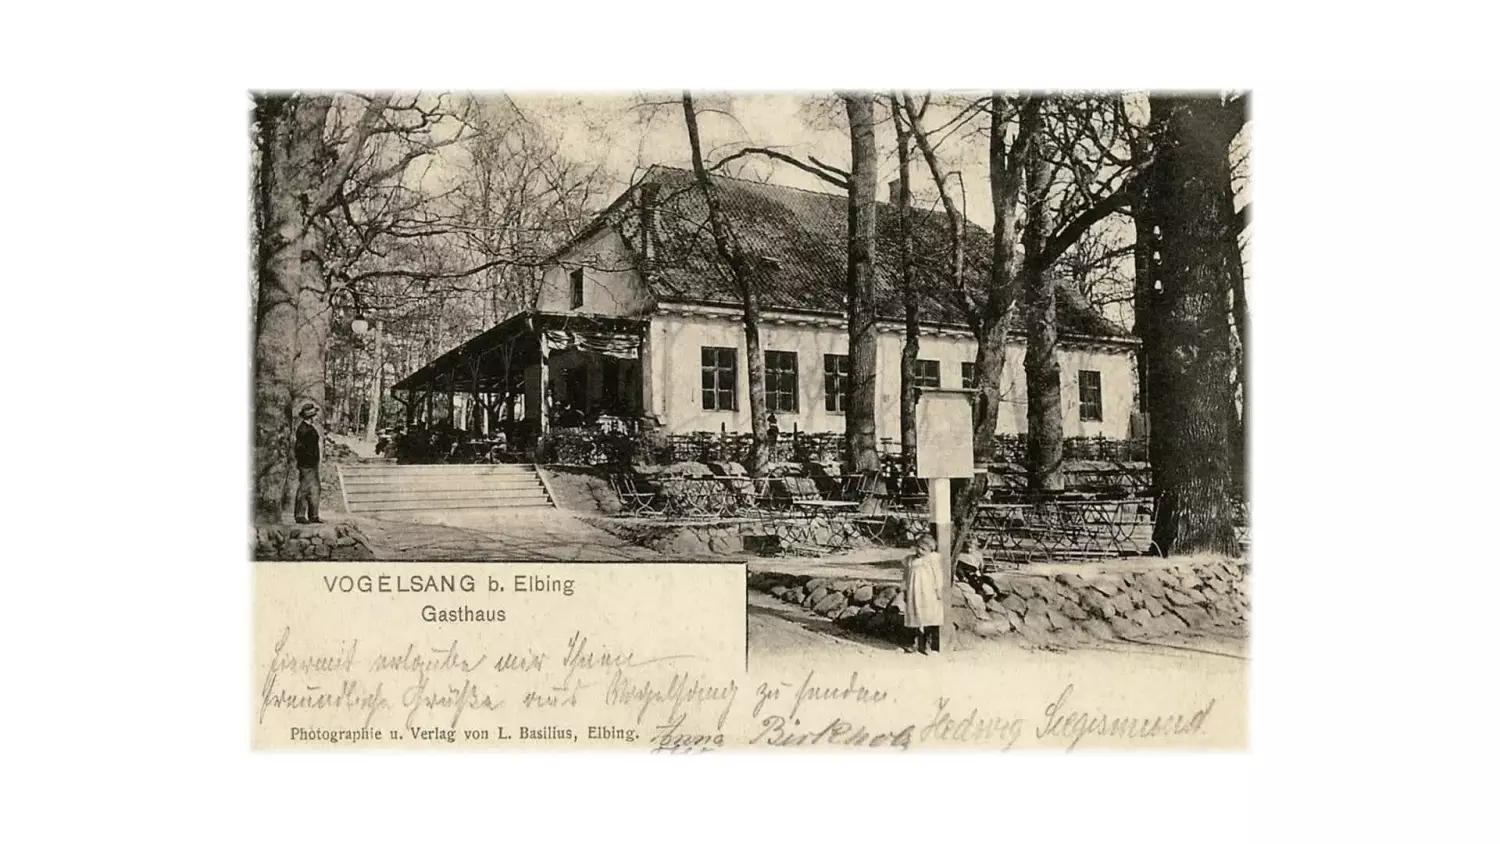 VOGELSANG b. Elbing
Gasthaus
Hiermit erlaube mir Ihnen
freundliche Grüße aus Vogelsang zu senden.
Photographie u. Verlag von L. Basilius, Elbing.
Anna Birkholz Hedwig Siegismund